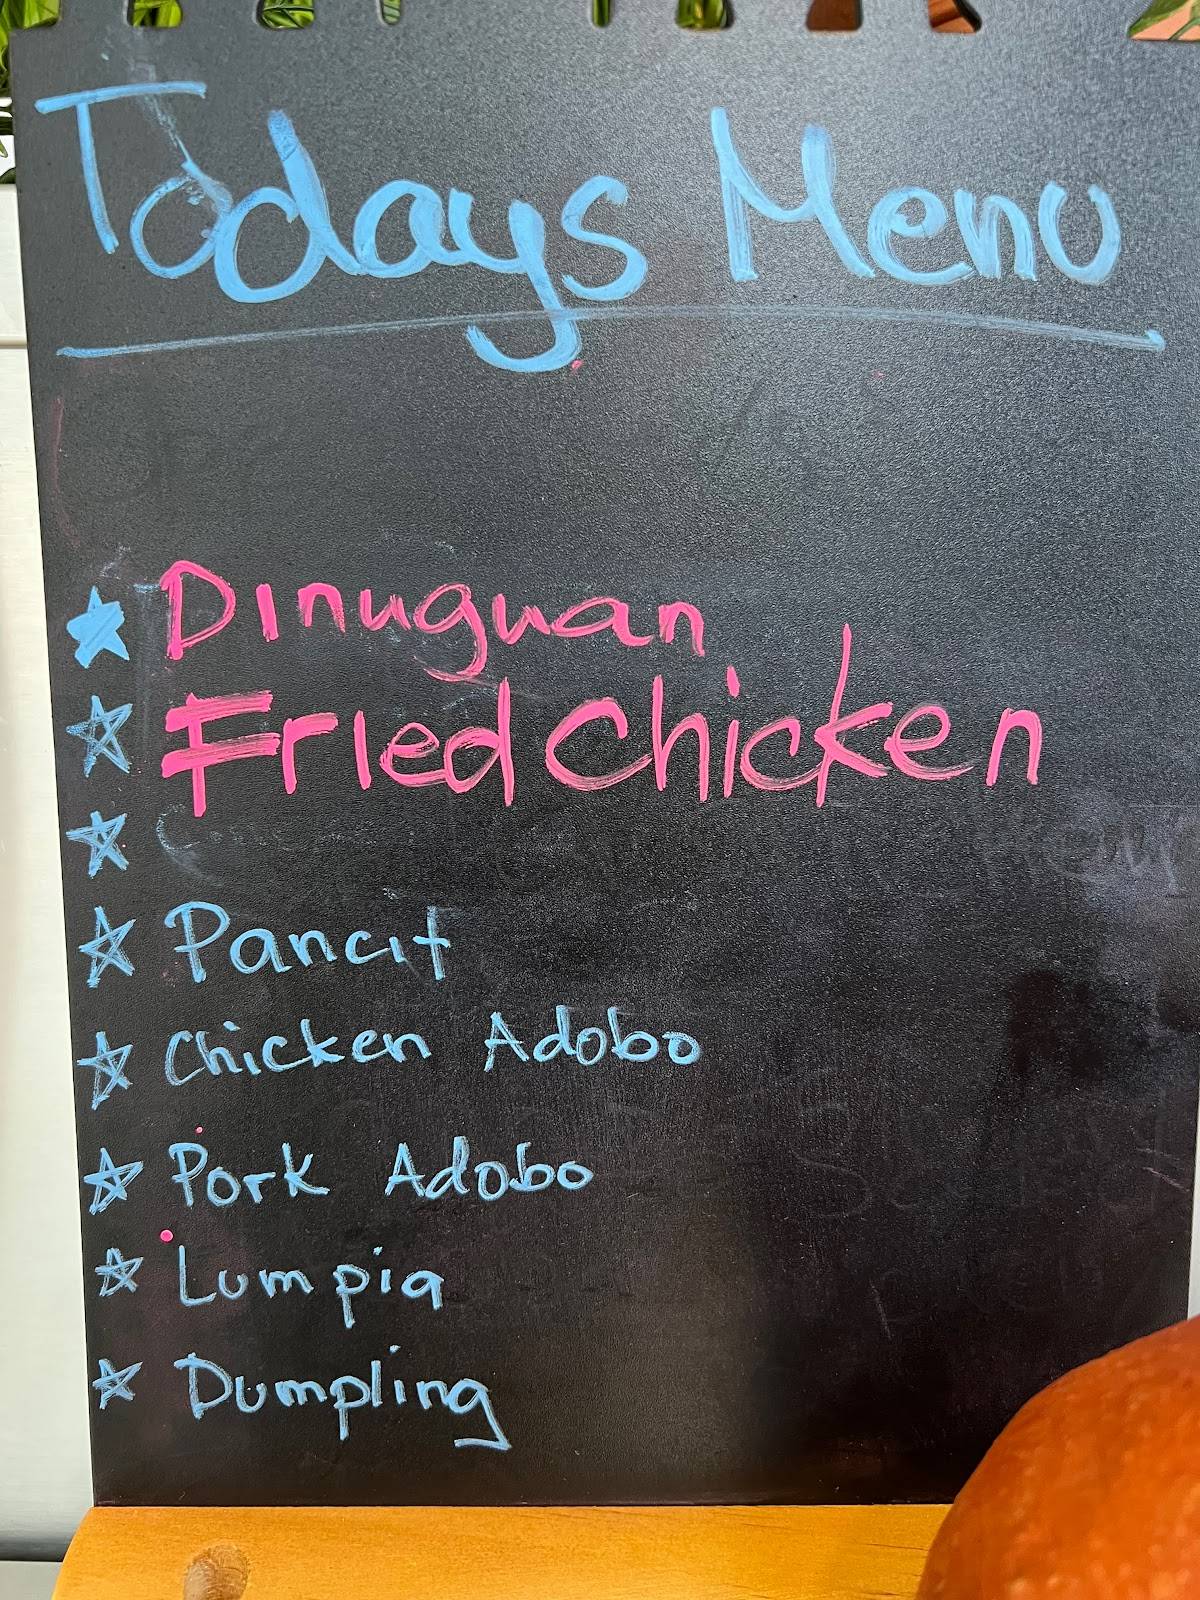 Todays Menu
Dinuguan
Fried Chicken
Pancit
Chicken Adobo
Pork Adobo
Lumpia
Dumpling